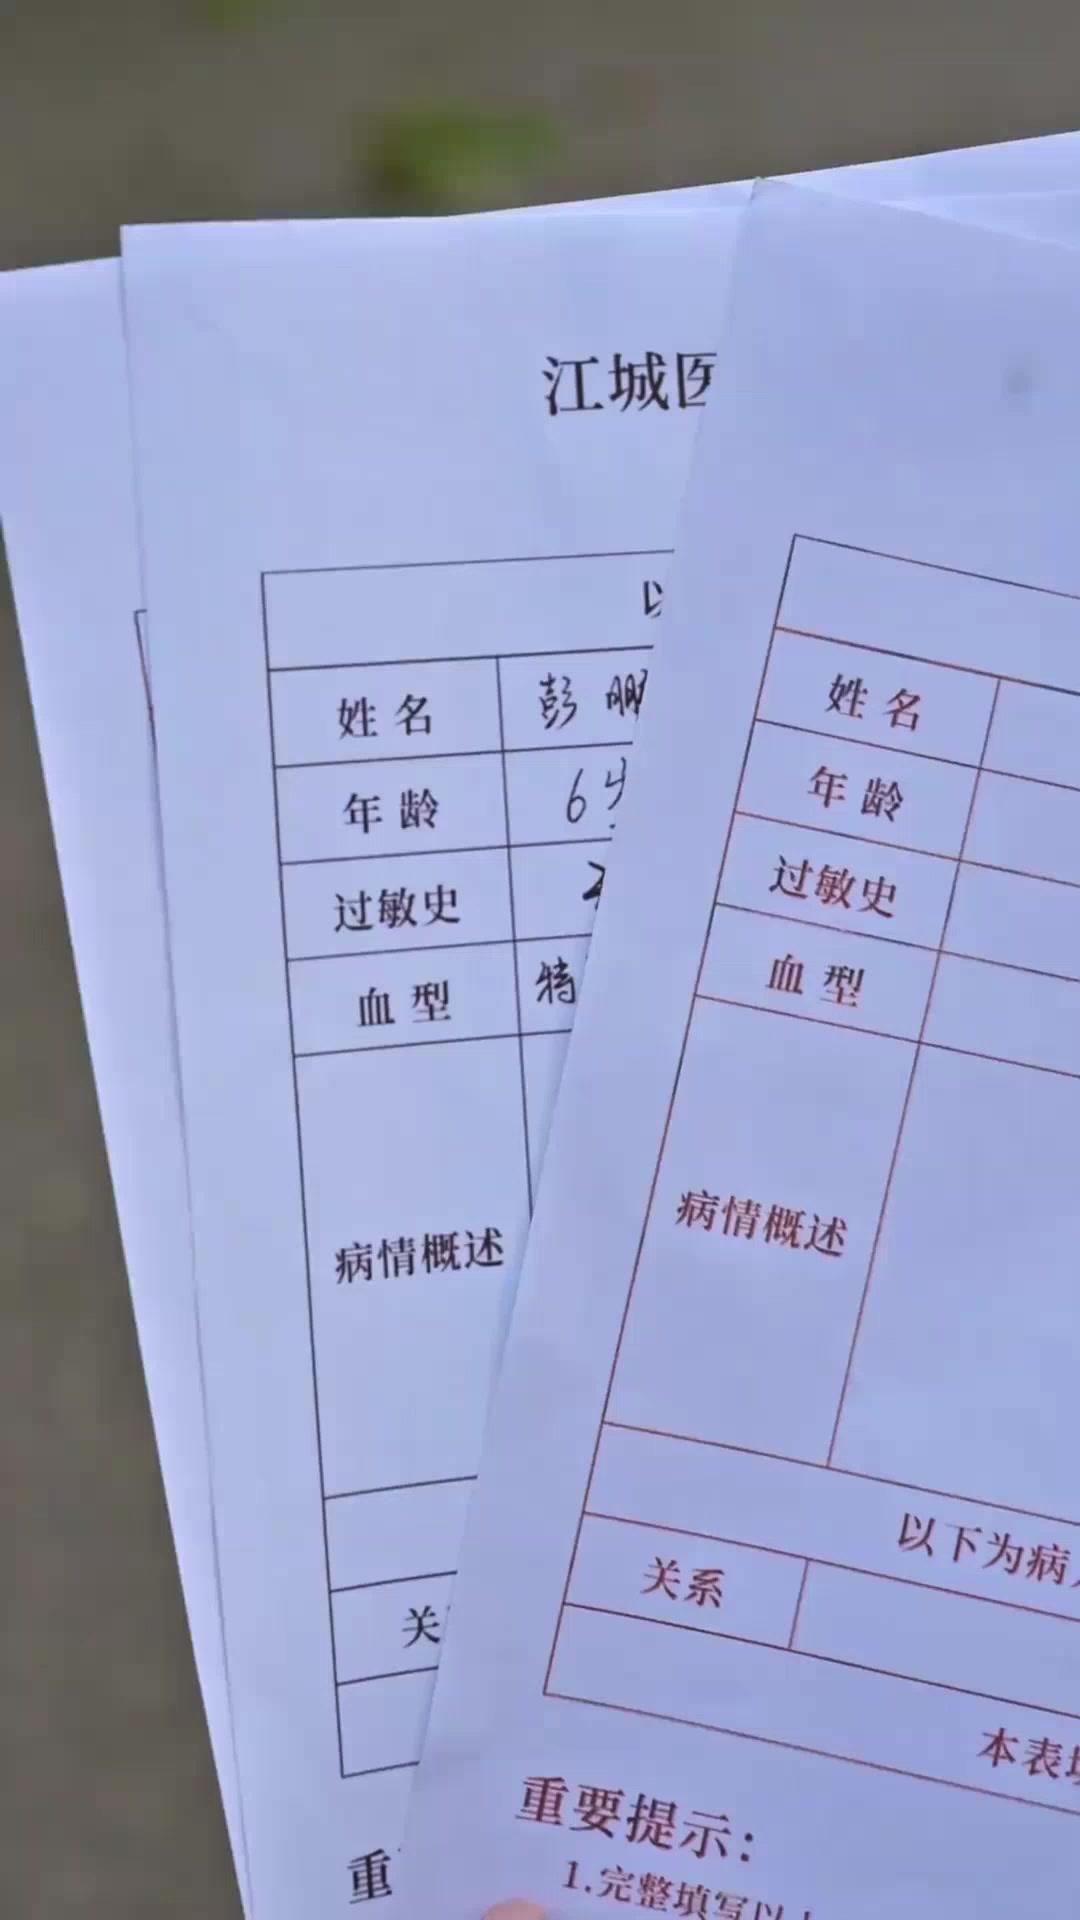 江城医
以
姓名 彭鹏
年龄 6岁
过敏史
血型 特
病情概述
关
重
姓名
年龄
过敏史
血型
病情概述
以下为病人
关系
本表填
重要提示：
1.完整填写以上